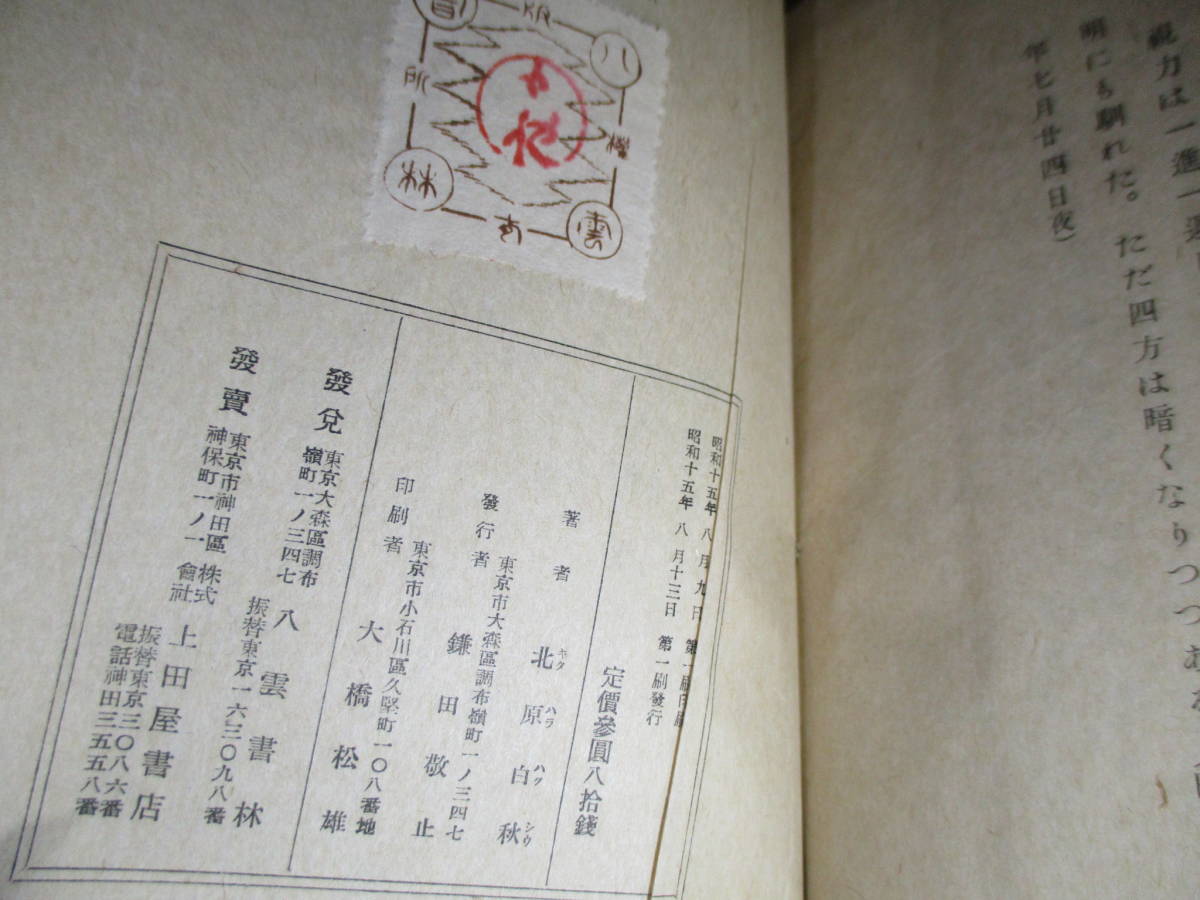 視力は一進一
明にも馴れた。ただ四方は暗くなりつつあ
年七月廿四日夜）
八雲書林
版權所有
昭和十五年八月九日 第一刷印刷
昭和十五年八月十三日 第一刷發行
定價參圓八拾錢
著者 北原白秋
キタ ハラ ハク シウ
東京市大森區調布嶺町一ノ三四七
發行者 鎌田敬止
東京市小石川區久堅町一〇八番地
印刷者 大橋松雄
發兌 東京大森區調布
嶺町一ノ三四七 八雲書林
振替東京一六三〇九八番
發賣 東京市神田區
神保町一ノ一 株式
會社 上田屋書店
振替東京三〇八六番
電話神田三五五八番